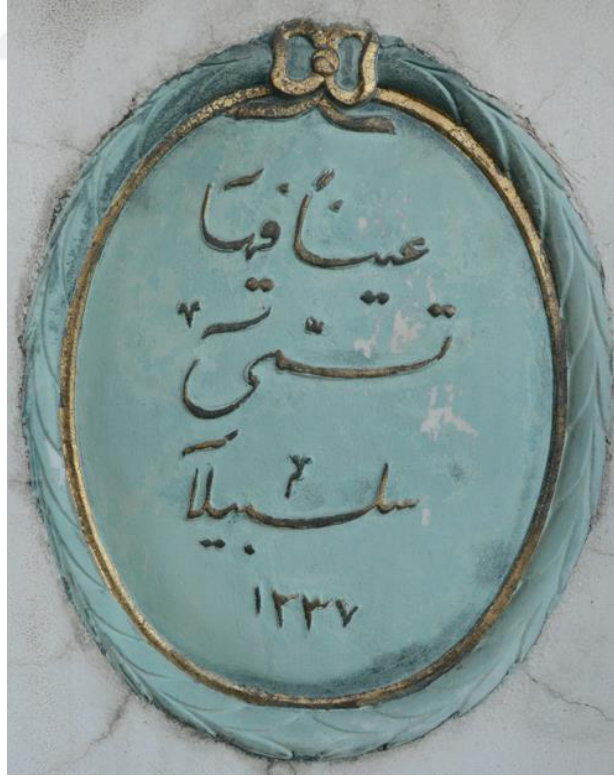 عيناً فيها
تسمى
سلسبيلاً
١٢٣٧